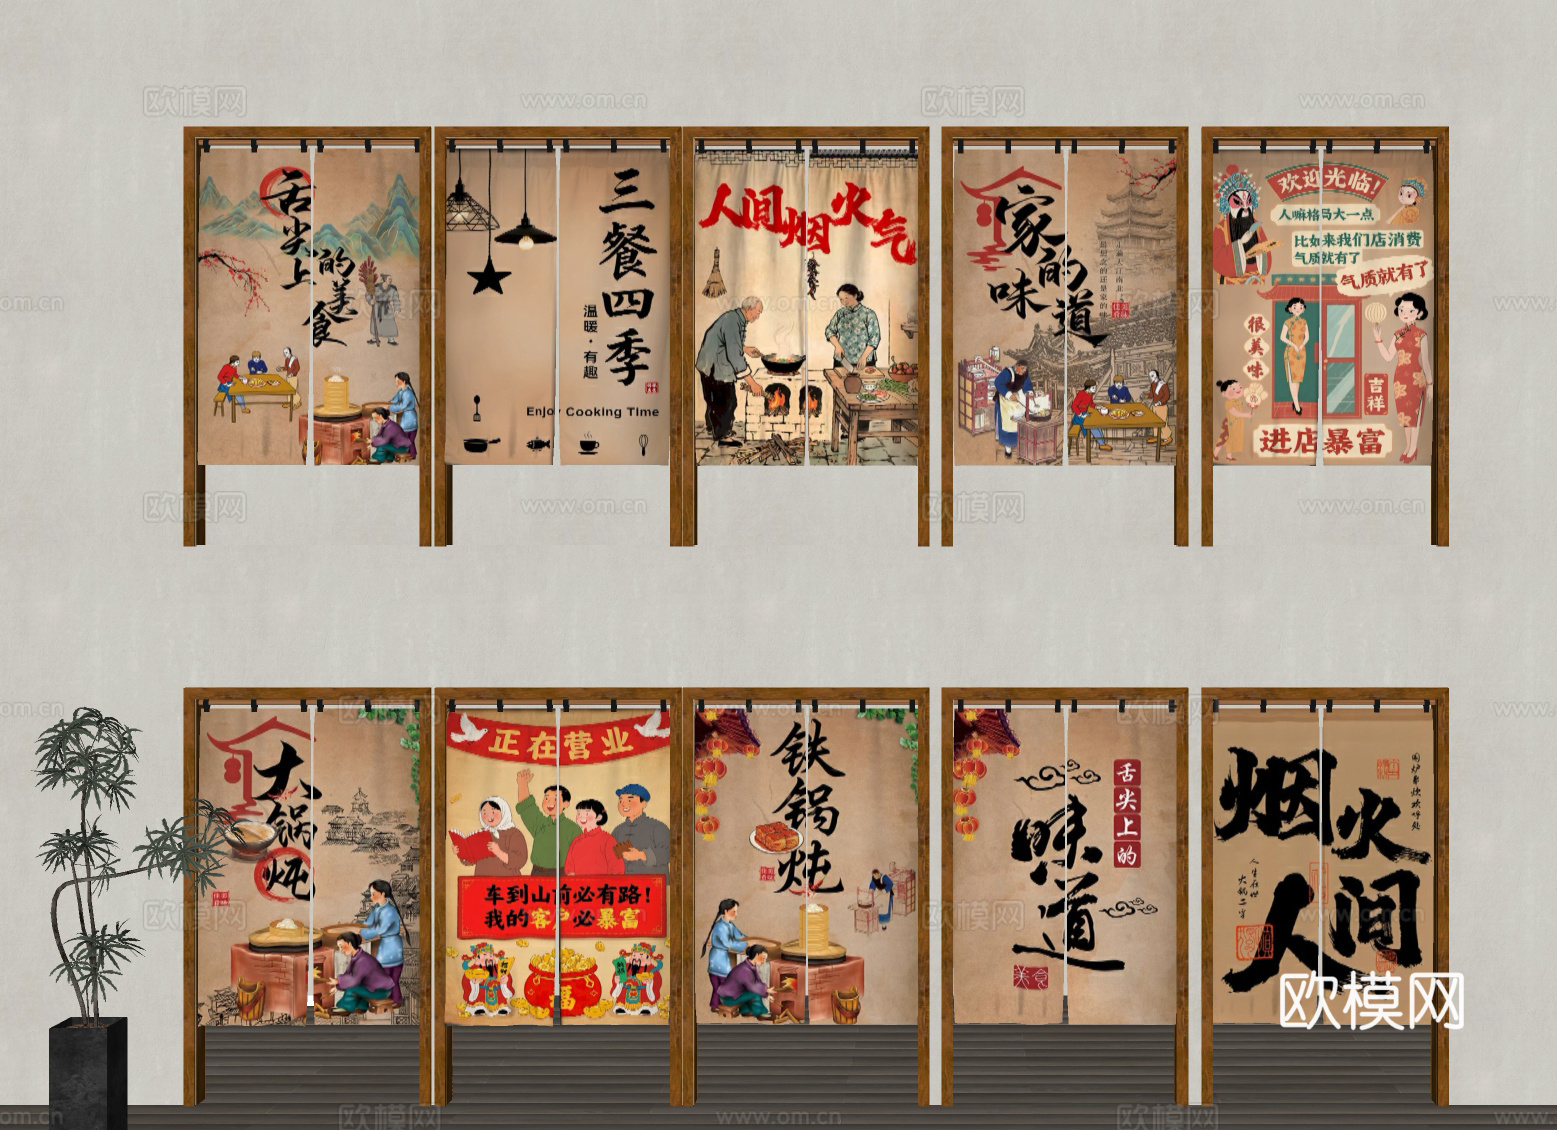 欧模网
www.om.cn
舌尖上
的美食
三餐四季
温暖·有趣
Enjoy Cooking Time
人间烟火气
家的味道
欢迎光临!
人嘛格局大一点
比如来我们店消费
气质就有了
气质就有了
很美味
吉祥
进店暴富
大锅炖
正在营业
车到山前必有路!
我的客户必暴富
福
铁锅炖
舌尖上的
味道
美食
烟火
人间
围炉煮炊欢呼处
人生在世
火锅二字
欧模网